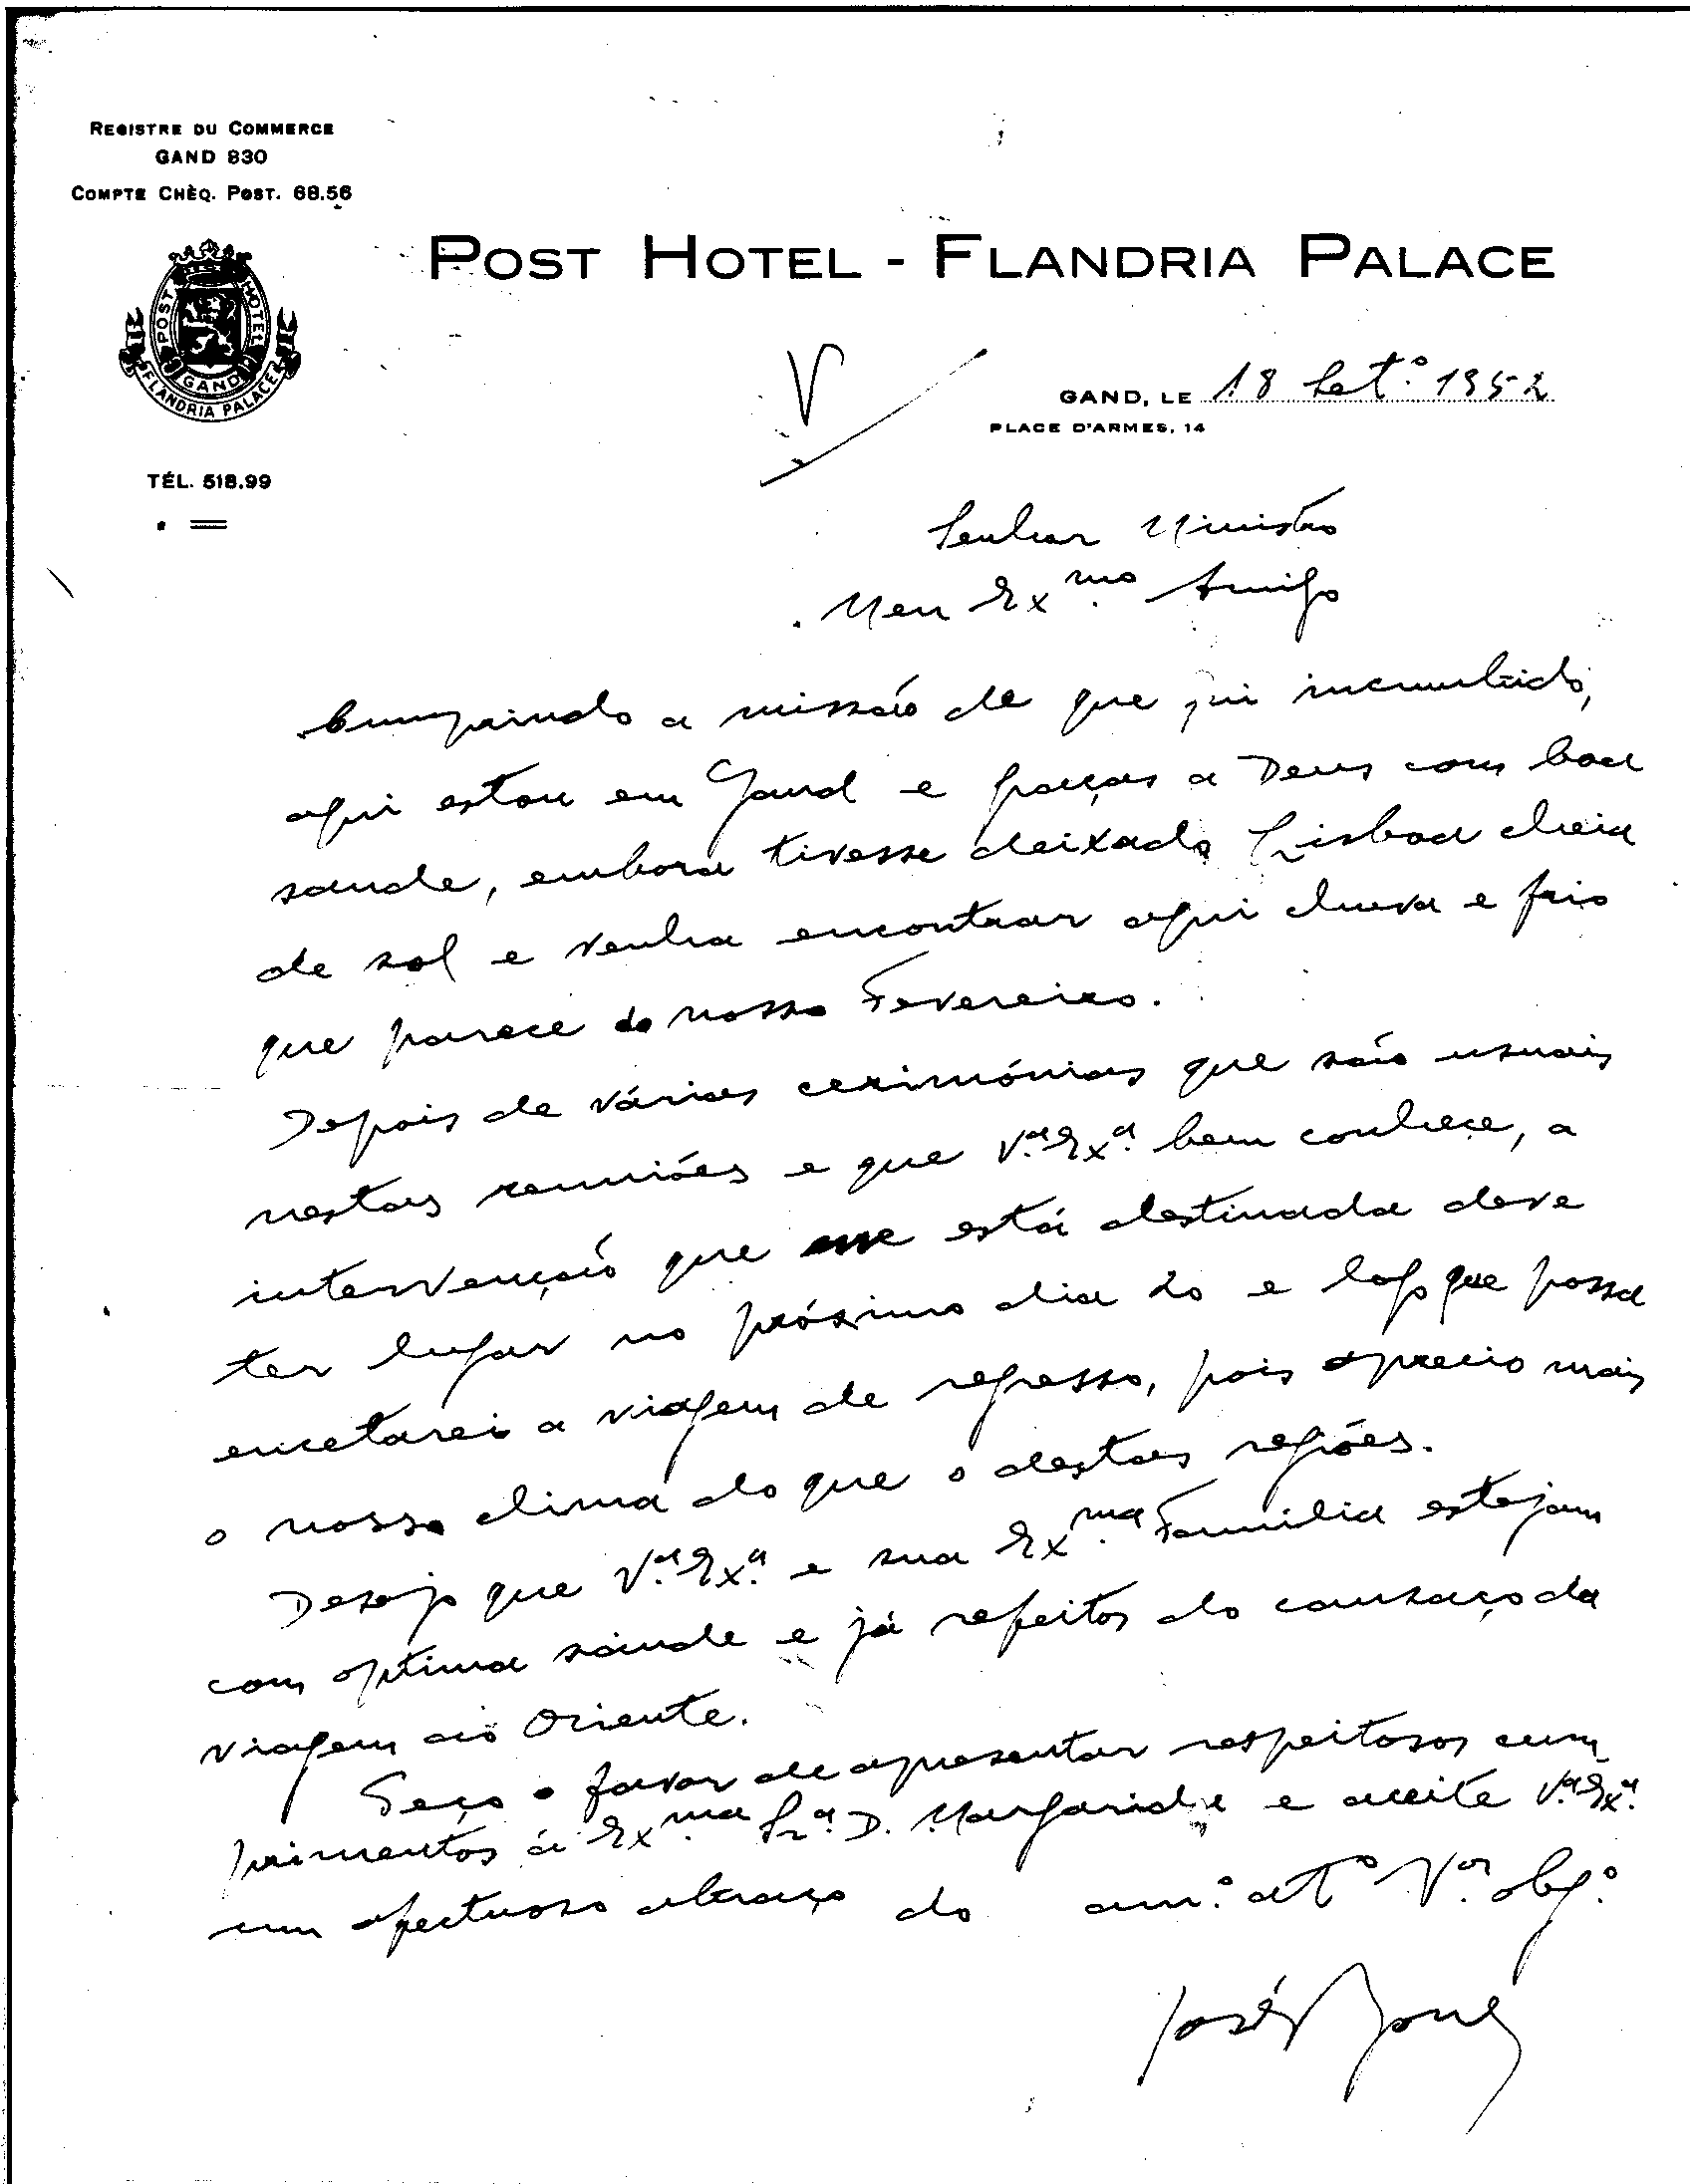 REGISTRE DU COMMERCE
GAND 830
COMPTE CHÈQ. POST. 68.56
POST HOTEL - FLANDRIA PALACE
POST HOTEL
GAND
FLANDRIA PALACE
TÉL. 518.99
V
GAND, LE 18 Set.º 1952
PLACE D'ARMES, 14
Senhor Ministro
Meu Ex.mo Amigo
Cumprindo a missão de que fui incumbido,
aqui estou em Gand e graças a Deus com boa
saude, embora tivesse deixado Lisboa cheia
de sol e venha encontrar aqui chuva e frio
que parece do nosso Fevereiro.
Depois de várias cerimónias que são usuais
nestas reuniões e que V.ª Ex.ª bem conhece, a
intervenção que me está destinada deve
ter lugar no próximo dia 20 e logo que possa
encetarei a viagem de regresso, pois aprecio mais
o nosso clima do que o destas regiões.
Desejo que V.ª Ex.ª e sua Ex.ma Familia estejam
com optima saúde e já refeitos do cansaço da
viagem ao Oriente.
Peço o favor de apresentar respeitosos cum
primentos á Ex.ma Sr.ª D. Margarida e aceite V.ª Ex.ª
um afectuoso abraço do am.º at.º V.or obg.º
José